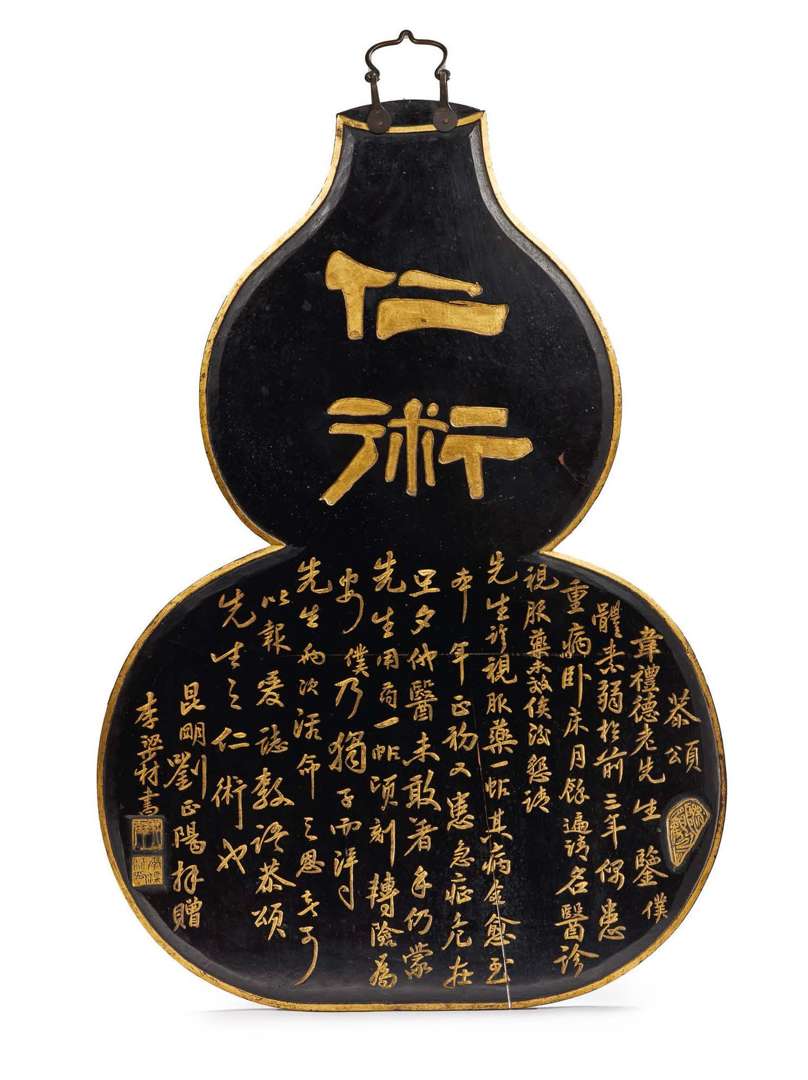 仁術
恭頌
韋禮德老先生鑒僕
體素弱於前三年偶患
重病卧床月餘遍請名醫診
視服藥未效後懇請
先生診視服藥一帖其病全愈至
本年正初又患急症危在
旦夕他醫未敢著手仍蒙
先生用葯一帖頃刻轉險為
安僕乃獨子而洋
先生兩次活命之恩無可
以報爰誌數語恭頌
先生之仁術也
昆明劉正陽拜贈
李翠材書